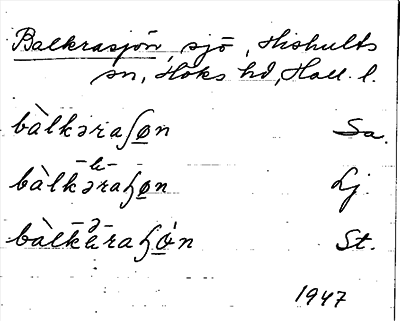 Balkrasjön, sjö, Hishults
sn, Höks hd, Hall. l.
bàlkəraʃøn Sa.
-e-
bàlkəraɧøn Lj.
ə
bàlkēraɧǿn St.
1947